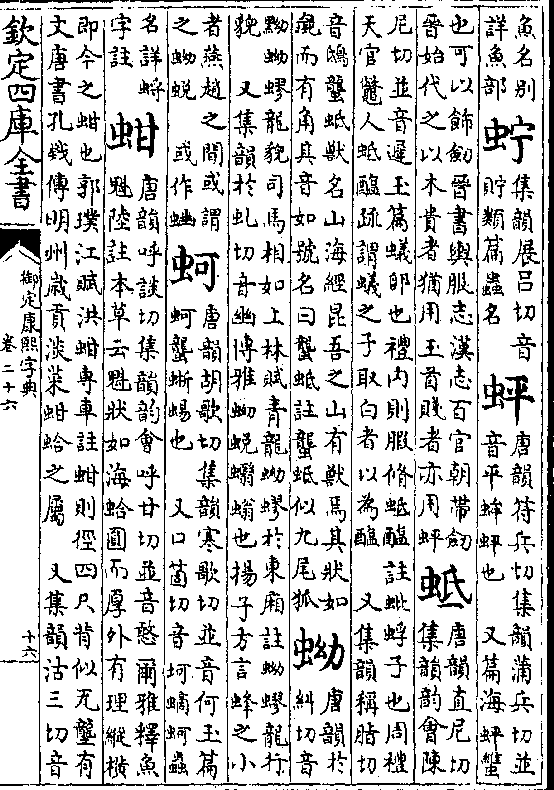 魚名别
詳魚部
䖢
集韻展呂切音
貯類篇蟲名
蚲
唐韻符兵切集韻蒲兵切並
音平蛑蚲也　又篇海蚲蟹
也可以飾劒晉書輿服志漢志百官朝帶劒
晉始代之以木貴者猶用玉首賤者亦用蚲
蚳
唐韻直尼切
集韻韻會陳
尼切並音遲玉篇蟻卵也禮内則腶脩蚳醢註蚍蜉子也周禮
天官鼈人蚳醢疏謂蟻之子取白者以為醢　又集韻稱脂切
音鴟蠪蚳獸名山海經昆吾之山有獸焉其狀如
彘而有角其音如號名曰蠪蚳註蠪蚳似九尾狐
蚴
唐韻於
糾切音
黝蚴蟉龍貌司馬相如上林賦青龍蚴蟉於東廂註蚴蟉龍行
貌　又集韻於虬切音幽博雅蚴蜕蠮螉也揚子方言蜂之小
者燕趙之間或謂
之蚴蜕　或作𧌄
蚵
唐韻胡歌切集韻寒歌切並音何玉篇
蚵蠪蜥蜴也　又口箇切音坷螪蚵蟲
名詳螪
字註
蚶
唐韻呼談切集韻韻會呼甘切並音憨爾雅釋魚
魁陸註本草云魁狀如海蛤圓而厚外有理縱橫
即今之蚶也郭璞江賦洪蚶專車註蚶則徑四尺背似瓦壟有
文唐書孔戣傳明州歳貢淡菜蚶蛤之屬　又集韻沽三切音
欽定四庫全書
御定康熙字典
卷二十六
十六